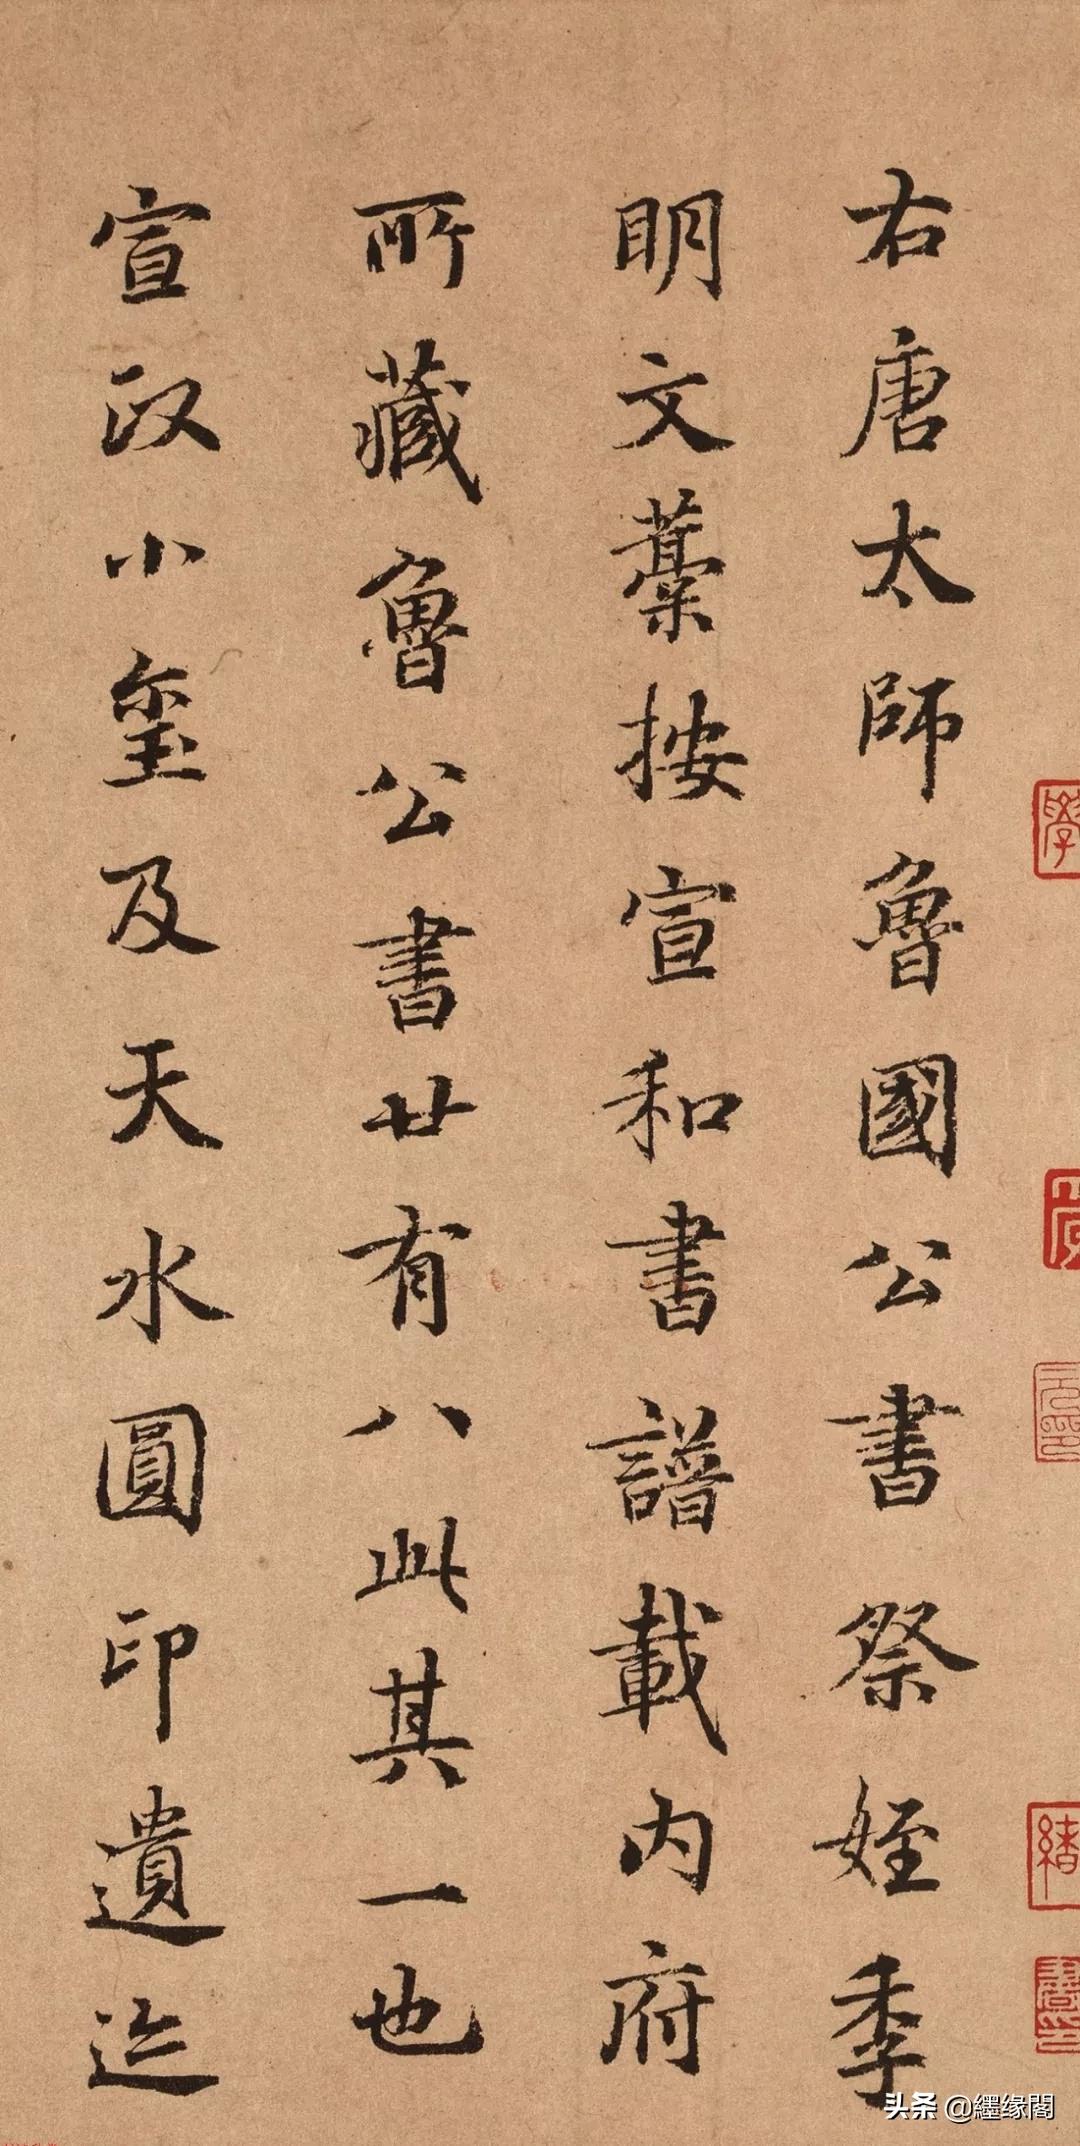 右唐太師魯國公書祭姪季
明文藁按宣和書譜載內府
所藏魯公書廿有八此其一也
宣政小璽及天水圓印遺迹
头条 @纆缘閣